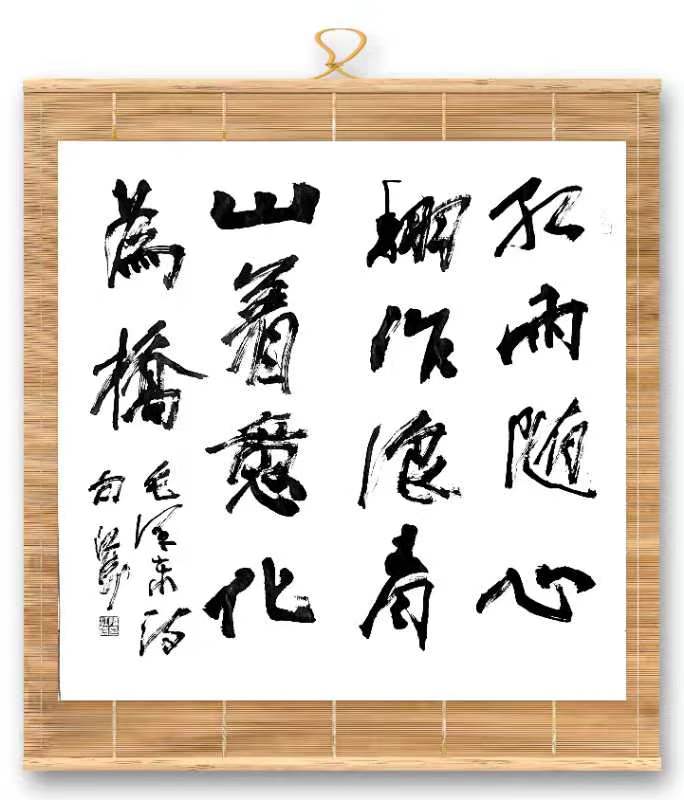 红雨随心
翻作浪青
山着意化
為橋
毛泽东诗
句